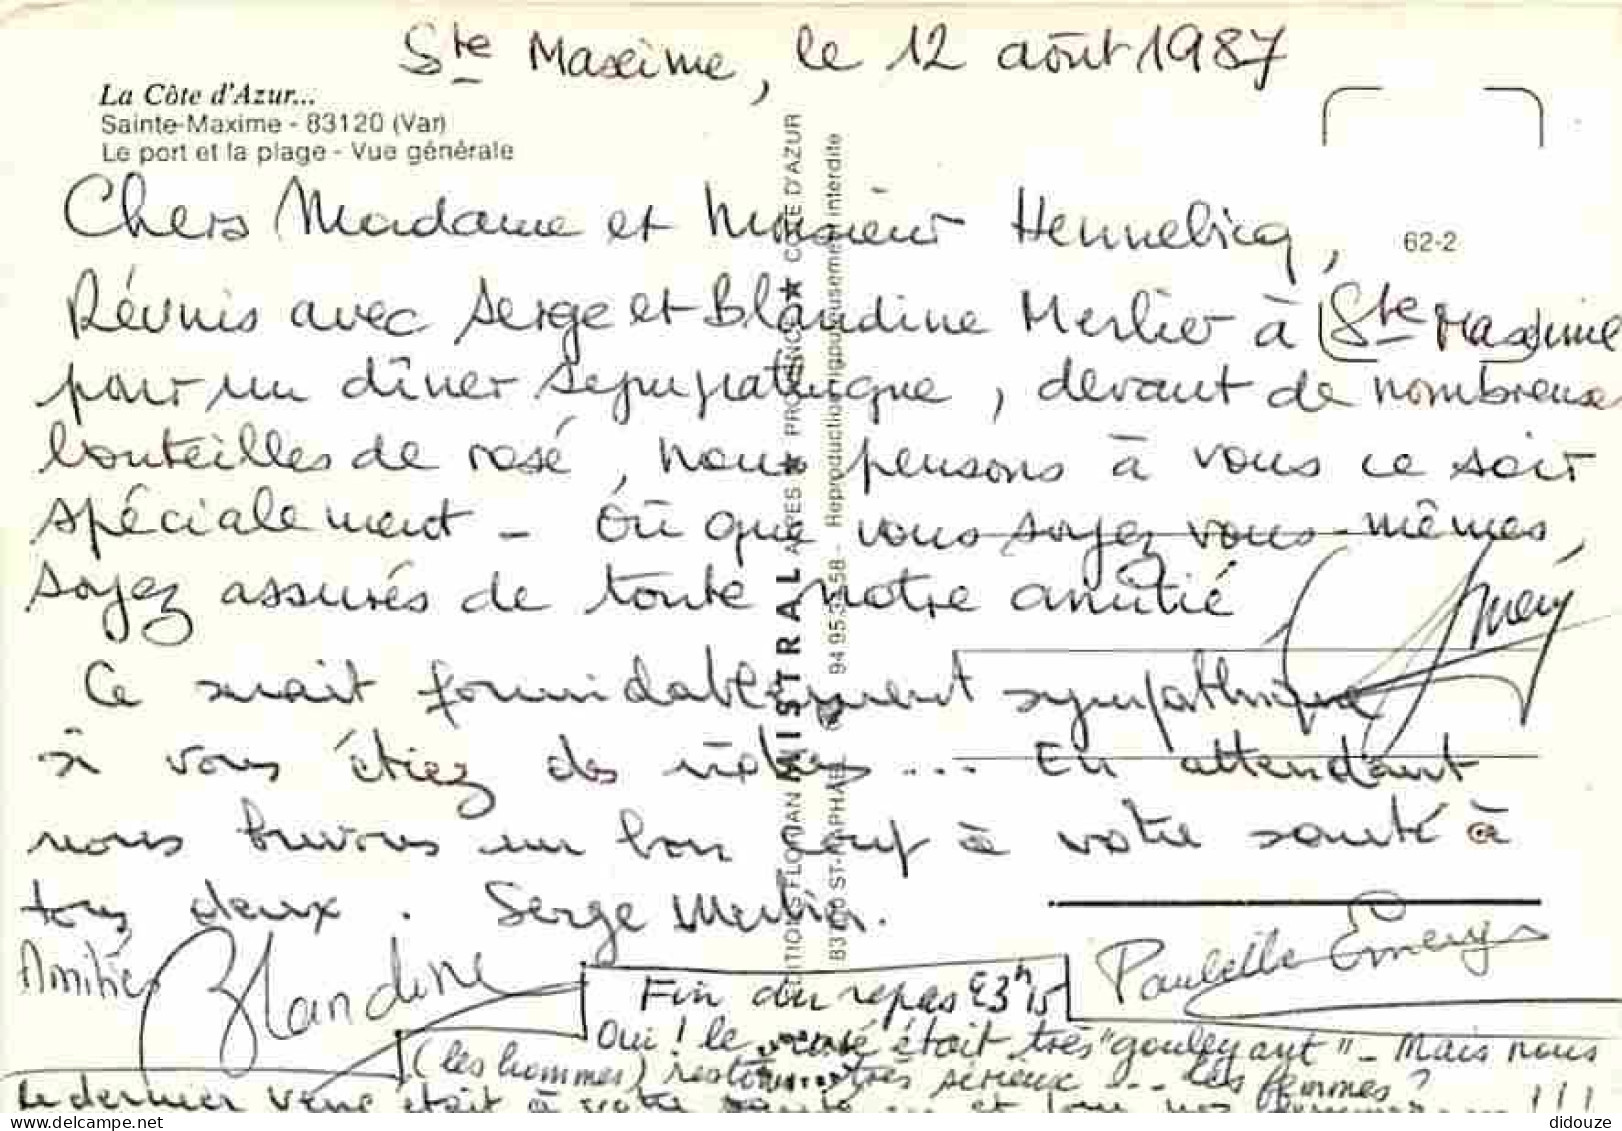 Ste Maxime, le 12 août 1987
La Côte d'Azur...
Sainte-Maxime - 83120 (Var)
Le port et la plage - Vue générale
62-2
Chers Madame et Monsieur Hennebicq,
Réunis avec Serge et Blandine Merlier à Ste Maxime
pour un dîner sympathique, devant de nombreuses
bouteilles de rosé, nous pensons à vous ce soir
spécialement - Où que vous soyez vous-mêmes,
soyez assurés de toute notre amitié
Ce serait formidablement sympathique
si vous étiez des nôtres ... En attendant
nous buvons un bon coup à votre santé à
tous deux. Serge Merlier.
Amitiés Blandine
Paulette Emery
Fin du repas 23h15
Oui ! le rosé était très "gouleyant" - Mais nous
(les hommes) restons très sérieux ... les femmes ?
Le dernier verre était à votre santé ... et !!!
EDITIONS FLORIAN MISTRAL ALPES ★ PROVENCE ★ COTE D'AZUR
ST-RAPHAEL - Reproduction rigoureusement interdite
didouze